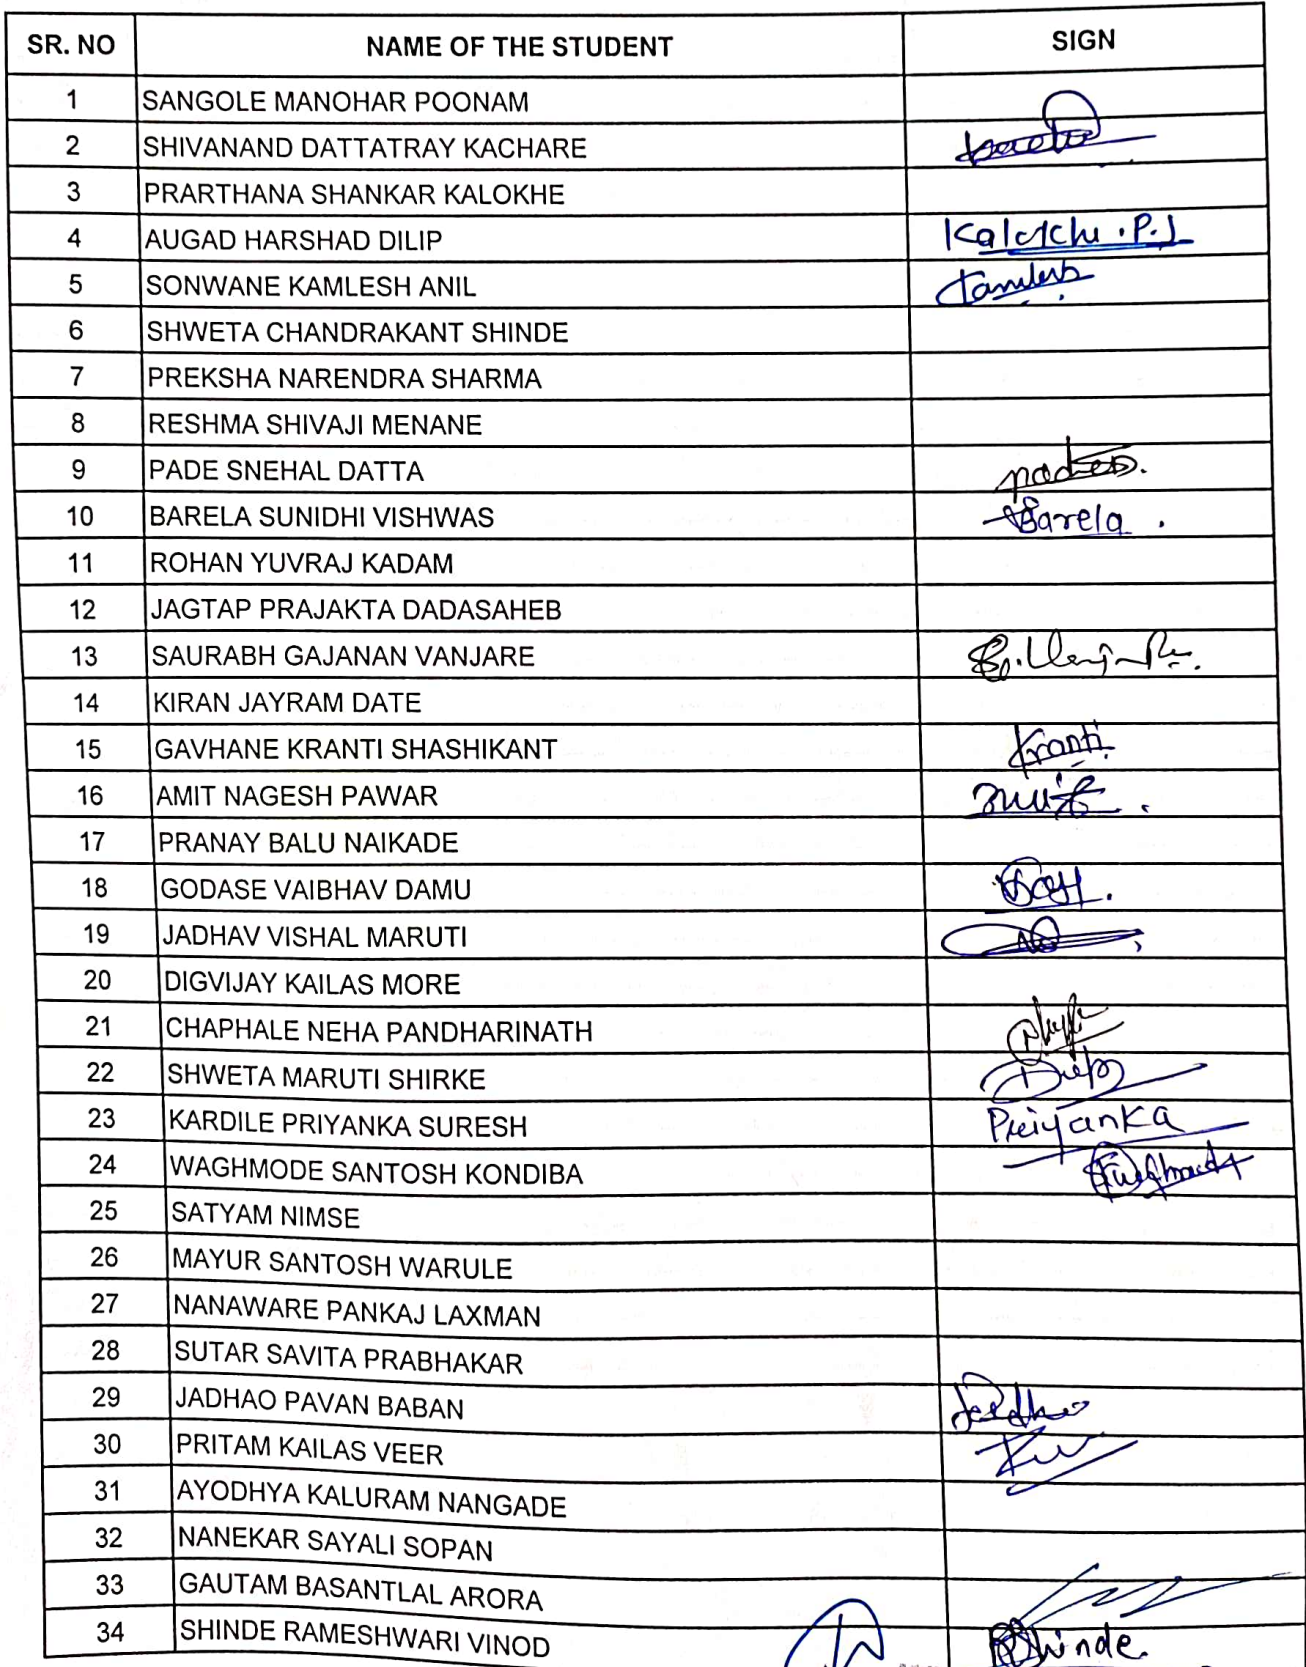 SR. NO NAME OF THE STUDENT SIGN
1 SANGOLE MANOHAR POONAM
2 SHIVANAND DATTATRAY KACHARE
3 PRARTHANA SHANKAR KALOKHE
4 AUGAD HARSHAD DILIP Kalokhe .P.S
5 SONWANE KAMLESH ANIL Kamlesh
6 SHWETA CHANDRAKANT SHINDE
7 PREKSHA NARENDRA SHARMA
8 RESHMA SHIVAJI MENANE
9 PADE SNEHAL DATTA
10 BARELA SUNIDHI VISHWAS Barela .
11 ROHAN YUVRAJ KADAM
12 JAGTAP PRAJAKTA DADASAHEB
13 SAURABH GAJANAN VANJARE
14 KIRAN JAYRAM DATE
15 GAVHANE KRANTI SHASHIKANT Kranti
16 AMIT NAGESH PAWAR
17 PRANAY BALU NAIKADE
18 GODASE VAIBHAV DAMU
19 JADHAV VISHAL MARUTI
20 DIGVIJAY KAILAS MORE
21 CHAPHALE NEHA PANDHARINATH
22 SHWETA MARUTI SHIRKE
23 KARDILE PRIYANKA SURESH Priyanka
24 WAGHMODE SANTOSH KONDIBA
25 SATYAM NIMSE
26 MAYUR SANTOSH WARULE
27 NANAWARE PANKAJ LAXMAN
28 SUTAR SAVITA PRABHAKAR
29 JADHAO PAVAN BABAN Jadhao
30 PRITAM KAILAS VEER
31 AYODHYA KALURAM NANGADE
32 NANEKAR SAYALI SOPAN
33 GAUTAM BASANTLAL ARORA
34 SHINDE RAMESHWARI VINOD Shinde.